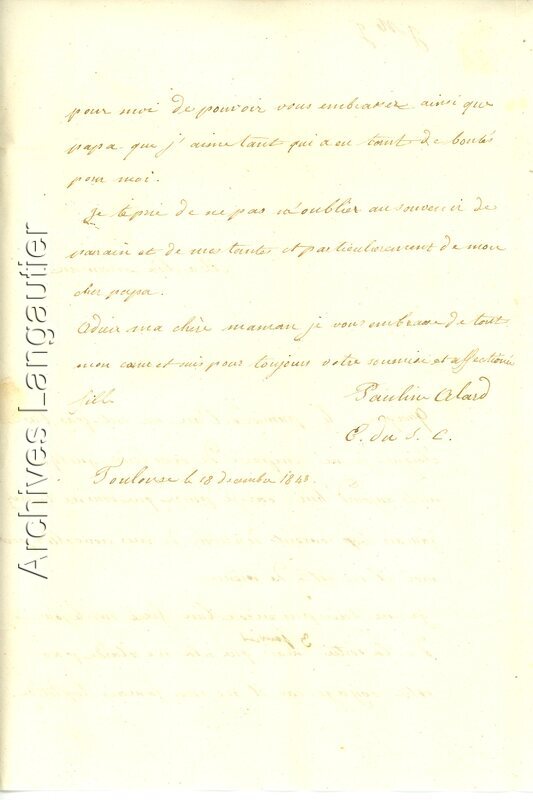 pour moi de pouvoir vous embrasser ainsi que
papa que j'aime tant qui a eu tant de bontés
pour moi.
je te prie de ne pas m'oublier au souvenir de
parain et de mes tantes et particulièrement de mon
cher papa.
Adieu ma chère maman je vous embrasse de tout
mon cœur et suis pour toujours votre soumise et affectionné
fille
Pauline Alard
E. du S. C.
Toulouse le 18 decembre 1843
Archives Langautier